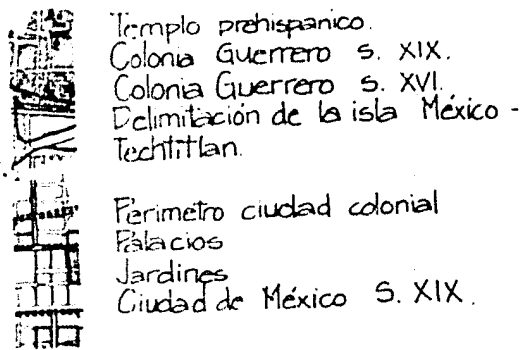 Templo prehispanico.
Colonia Guerrero S. XIX.
Colonia Guerrero S. XVI.
Delimitación de la isla México -
Techtitlan.
Perimetro ciudad colonial
Palacios
Jardines
Ciudad de México S. XIX.